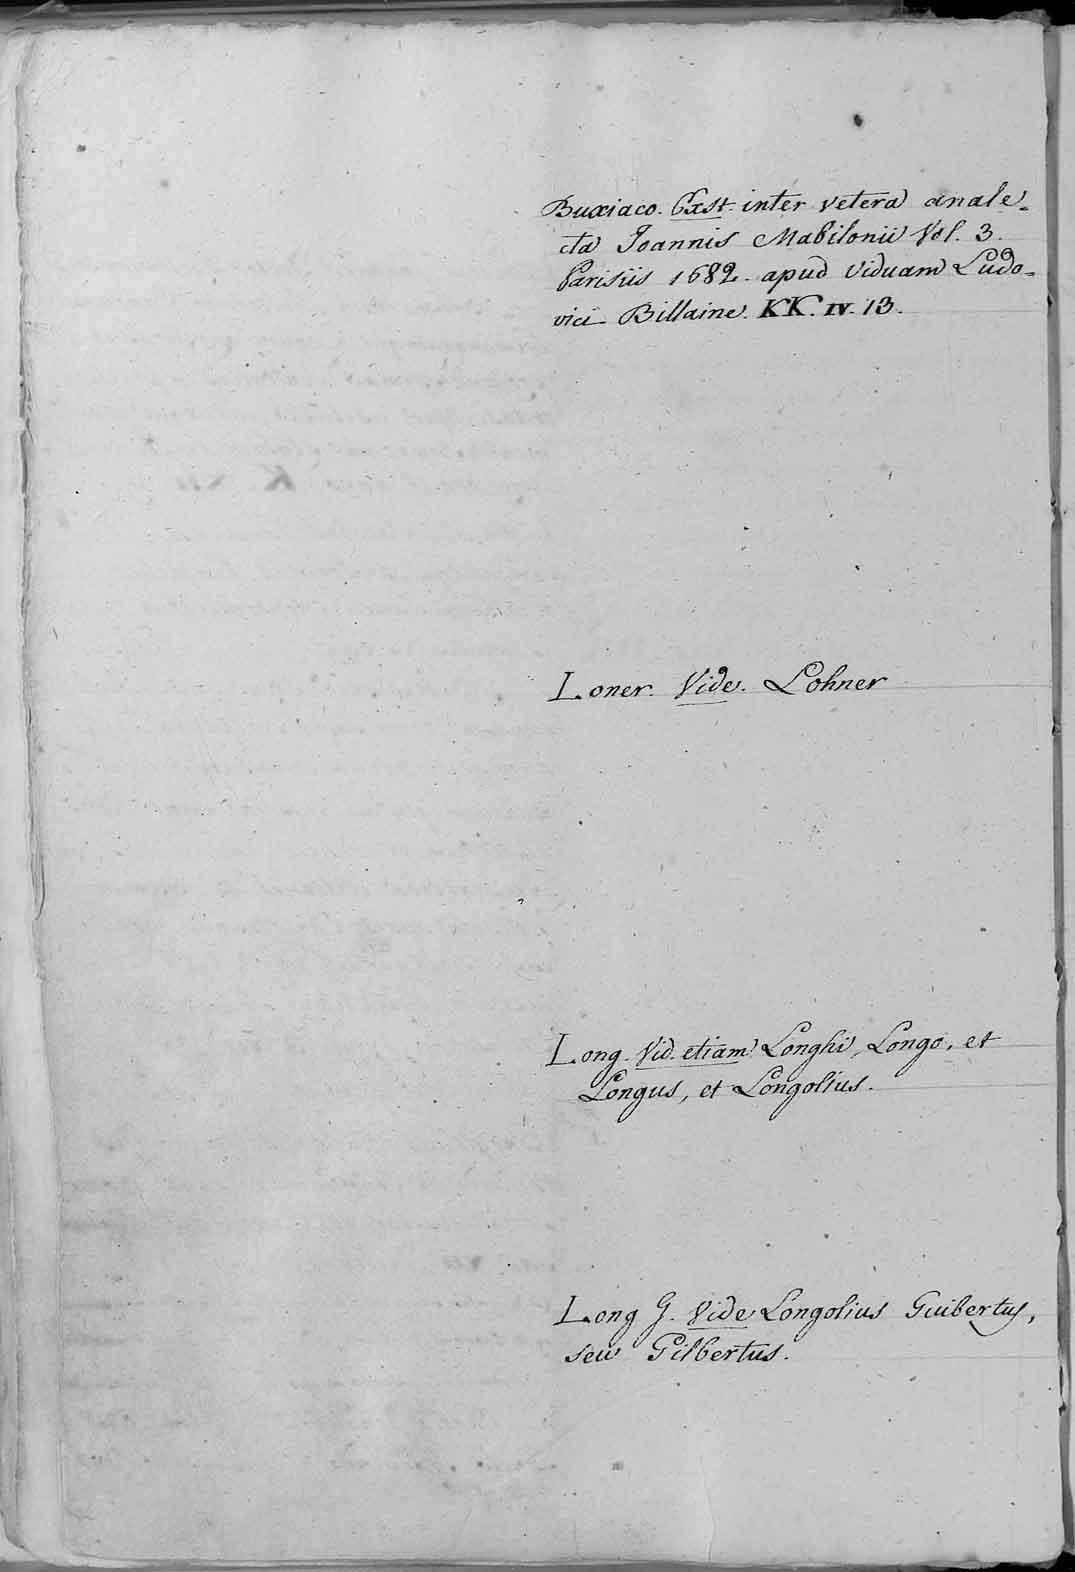 Buxiaco. Exst. inter vetera anale-
cta Joannis Mabilonii Vol. 3.
Parisiis 1682. apud Viduam Ludo-
vici Billaine. KK. IV. 13.
Loner. Vide. Lohner
Long. Vid. etiam Longhi, Longo, et
Longus, et Longolius.
Long G. Vide Longolius Guibertus,
seu Gilbertus.